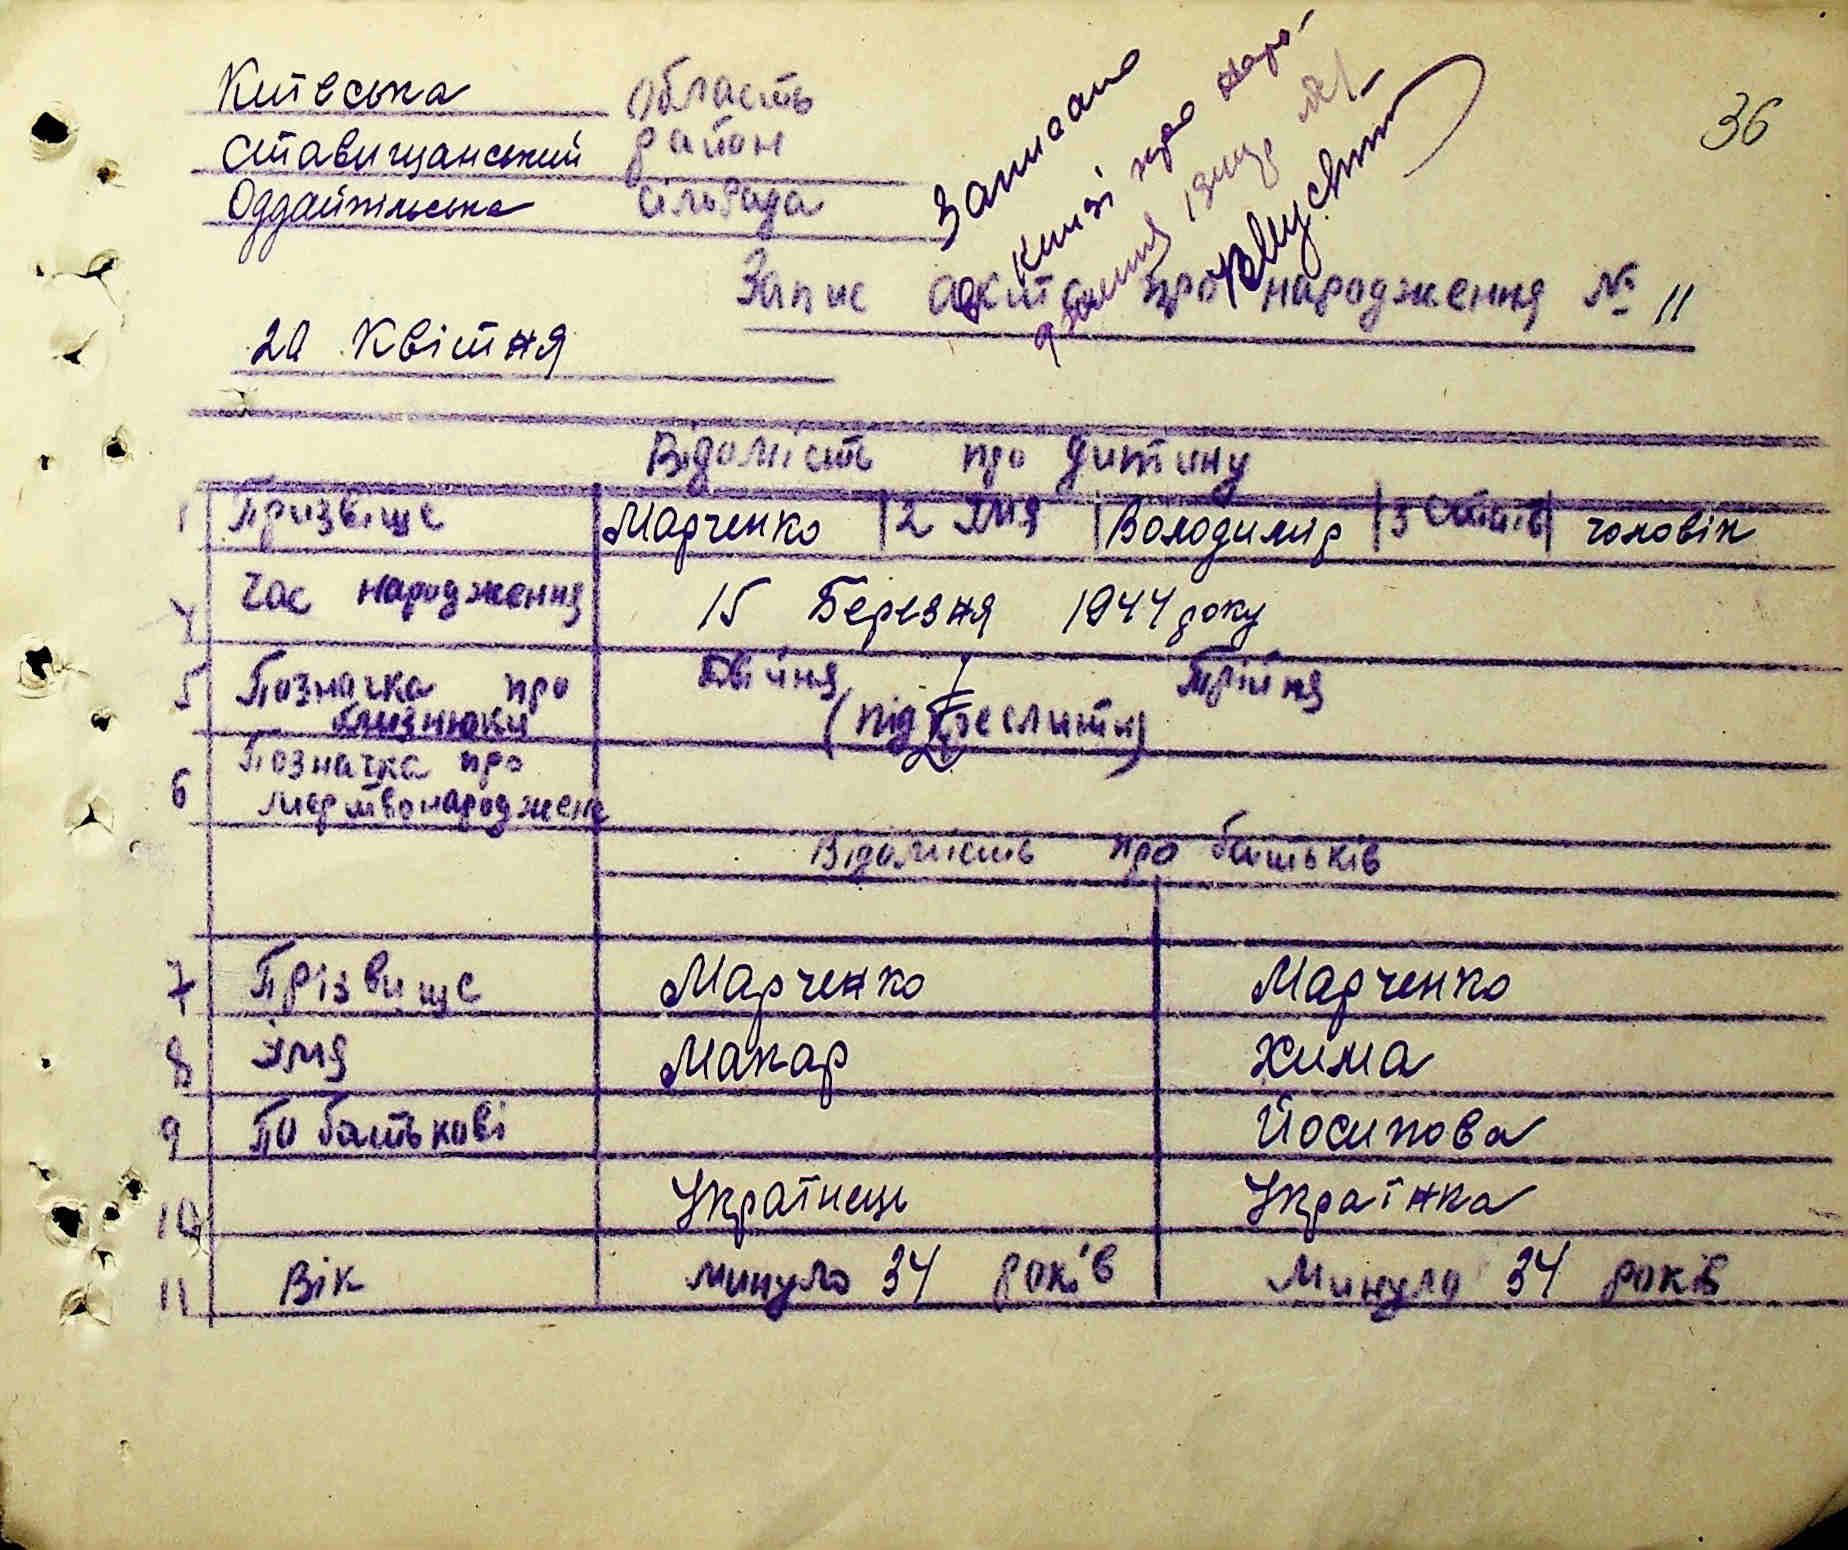 36
Київська область
Ставищанський район
Оддайпільська сільрада
Записано
в книзі про наро-
дження
Запис акита про народження № 11
20 Квітня
Відомість про дитину
1 Призвіще Марченко 2 Імя Володимир 3 Стать чоловік
4 Час народження 15 Березня 1944 року
5 Позначка про близнюки Двійня Трійня
(підкреслити)
6 Позначка про
мертвонароджен
Відомість про батьків
7 Прізвище Марченко Марченко
8 Імя Макар Хима
9 По батькові Йосипова
10 Українець Українка
11 Вік минуло 34 років минуло 34 років